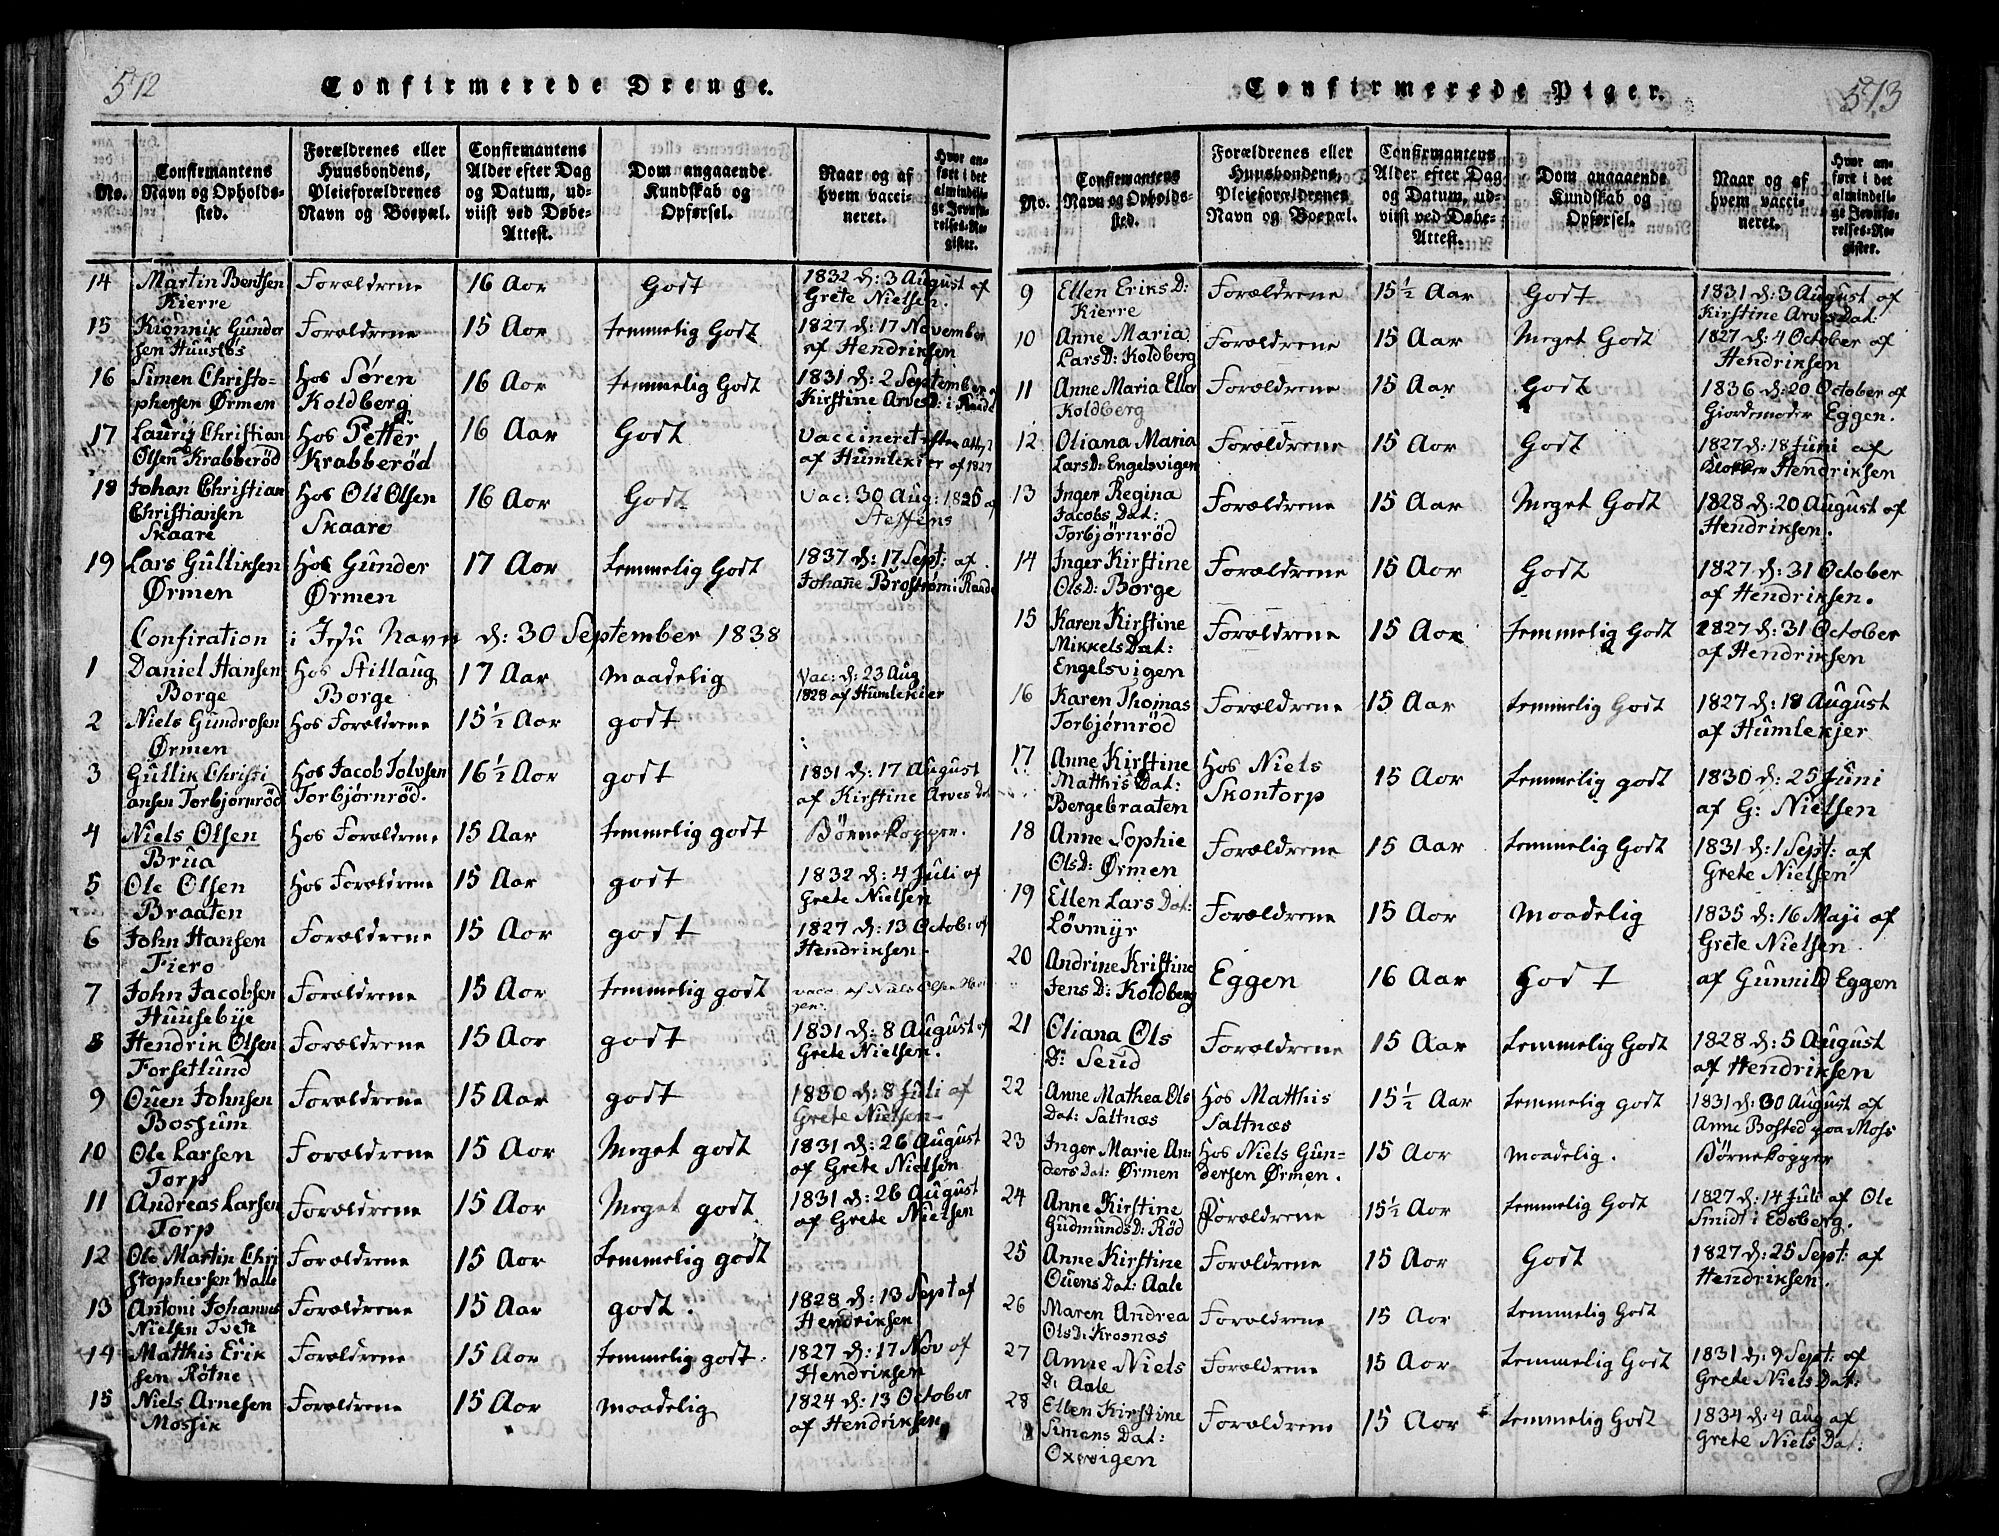 572
Confirmerede Drenge.
No.
Confirmantens
Navn og Opholds-
sted.
Forældrenes eller
Huusbondens,
Pleieforældrenes
Navn og Boepæl.
Confirmantens
Alder efter Dag
og Datum, ud-
viist ved Døbe-
Attest.
Dom angaaende
Kundskab og
Opførsel.
Naar og af
hvem vacci-
neret.
Hvor an-
ført i det
almindeli-
ge Jevnfø-
relses-Re-
gister.
14 Martin Bentsen Forældrene 16 Aar Godt 1832 d: 3 August af
Kierre Grete Nielsen.
15 Kionnik Gunder Forældrene 15 Aar temmelig Godt 1827 d: 17 November
sen Huusløs af Hendriksen
16 Simen Christo- Hos Søren 16 Aar temmelig Godt 1831 d: 2 September
phersen Ørmen Koldberg Kirstine Arvesd: i Raade
17 Lauritz Christian Hos Petter 16 Aar Godt Vaccineret efter att:
Olsen Krabberød Krabberød af Humlekier af 1827
18 Johan Christian Hos Ole Olsen 16 Aar Godt Vac: 30 Aug: 1825 af
Christiansen Skaare Steffens
Skaare
19 Lars Gulliksen Hos Gunder 17 Aar temmelig Godt 1837 d: 17 Sept: af
Ørmen Ørmen Johane Brostrøm i Raade
Confiration i Jesu Navn d: 30 September 1838
1 Daniel Hansen Hos Stillaug 17 Aar maadelig Vac: d: 23 Aug
Borge Borge 1828 af Humlekier
2 Niels Gundrosen Hos Forældrene 15 1/2 Aar godt
Ørmen
3 Gullik Christi Hos Jacob Tolvsen 16 1/2 Aar godt 1831 d: 17 August
ansen Torbjørnrød Torbjørnrød. af Kirstine Arves Dat
4 Niels Olsen Hos Forældrene 15 Aar temmelig godt Børnekopper.
Brua
5 Ole Olsen Hos Forældrene 15 Aar godt 1832 d: 4 Juli af
Braaten Grete Nielsen
6 John Hansen Forældrene 15 Aar godt 1827 d: 13 Octob: af
Fiero Hendriksen.
7 John Jacobsen Forældrene 15 Aar temmelig godt vacc. af Niels Olsen
Huusebye
8 Hendrik Olsen Forældrene 15 Aar godt 1831 d: 8 August af
Forsetlund Grete Nielsen.
9 Ouen Johnsen Forældrene 15 Aar godt 1830 d: 8 Juli af
Bossum Grete Nielsen
10 Ole Larsen Forældrene 15 Aar Meget godt 1831 d: 26 August
Torp af Grete Nielsen
11 Andreas Larsen Forældrene 15 Aar Meget godt 1831 d: 26 August
Torp af Grete Nielsen
12 Ole Martin Chri Forældrene 15 Aar temmelig godt
stophersen Walle
13 Antoni Johannes Forældrene 15 Aar godt. 1828 d: 13 Sept af
Nielsen Tvete Hendriksen
14 Matthis Erik Forældrene 15 Aar temmelig godt. 1827 d: 17 Nov af
sen Røtne Hendriksen
15 Niels Arnesen Forældrene 15 Aar maadelig 1824 d: 13 October
Mossik af Hendriksen
573
Confirmerede Piger.
No.
Confirmantens
Navn og Opholds-
sted.
Forældrenes eller
Huusbondens,
Pleieforældrenes
Navn og Boepæl.
Confirmantens
Alder efter Dag
og Datum, ud-
viist ved Døbe-
Attest.
Dom angaaende
Kundskab og
Opførsel.
Naar og af
hvem vacci-
neret.
Hvor an-
ført i det
almindeli-
ge Jevnfø-
relses-Re-
gister.
9 Ellen Eriks D: Forældrene 15 1/2 Aar Godt 1831 d: 3 August af
Kierre Kirstine Arves Dat:
10 Anne Maria Forældrene 15 Aar Meget Godt 1827 d: 4 October af
Lars D: Koldberg Hendriksen
11 Anne Maria Eller Forældrene 15 Aar Godt 1836 d: 20 October af
Koldberg Giordemoder Eggen.
12 Oliana Maria Forældrene 15 Aar Godt 1827 d: 18 Juni af
Lars D: Engelsvigen Klokker Hendriksen
13 Inger Regina Forældrene 15 Aar Meget Godt 1828 d: 20 August af
Jacobs Dat: Hendriksen.
Torbjørnrød
14 Inger Kirstine Forældrene 15 Aar Godt 1827 d: 31 October
Ols D: Borge af Hendriksen.
15 Karen Kirstine Forældrene 15 Aar temmelig Godt 1827 d: 31 October
Mikkels Dat: af Hendriksen
Engelsvigen
16 Karen Thomas Forældrene 15 Aar temmelig Godt 1827 d: 18 August
Torbjørnrød af Humlekjer
17 Anne Kirstine Hos Niels 15 Aar temmelig godt 1830 d: 25 Juni
Matthis Dat: Skontorp af G: Nielsen
Bergebraaten
18 Anne Sophie Forældrene 15 Aar temmelig Godt 1831 d: 1 Sept: af
Ols D: Ørmen Grete Nielsen
19 Ellen Lars Dat: Forældrene 15 Aar Maadelig 1835 d: 16 Maji af
Løvmyr Grete Nielsen
20 Andrine Kristine Eggen 16 Aar Godt af Gunnild Eggen
Jens D: Koldberg
21 Oliana Ols Forældrene 15 Aar temmelig Godt 1828 d: 5 August
D: Seud af Hendriksen
22 Anne Mathea Ols Hos Matthis 15 1/2 Aar temmelig godt 1831 d: 30 August af
Dat: Saltnæs Saltnæs Anne Bosted paa Moss
23 Inger Marie An Hos Niels Gun- 15 Aar maadelig. Børnekopper
ders Dat: Ørmen dersen Ørmen.
24 Anne Kirstine Forældrene 15 1/2 Aar temmelig Godt 1827 d: 14 Juli af Ole
Gudmunds D: Rød Smidt i Edsberg.
25 Anne Kirstine Forældrene 15 Aar Godt 1827 d: 25 Sept: af
Ouens Dat: Aale Hendriksen.
26 Maren Andrea Forældrene 15 Aar temmelig Godt
Ols D: Krosnæs
27 Anne Niels Forældrene 15 Aar temmelig Godt 1831 d: 9 Sept: af
D: Aale Grete Niels Dat:
28 Ellen Kirstine Forældrene 15 Aar temmelig Godt 1834 d: 4 Aug af
Simens Dat: Grete Niels Dat:
Oxevigen